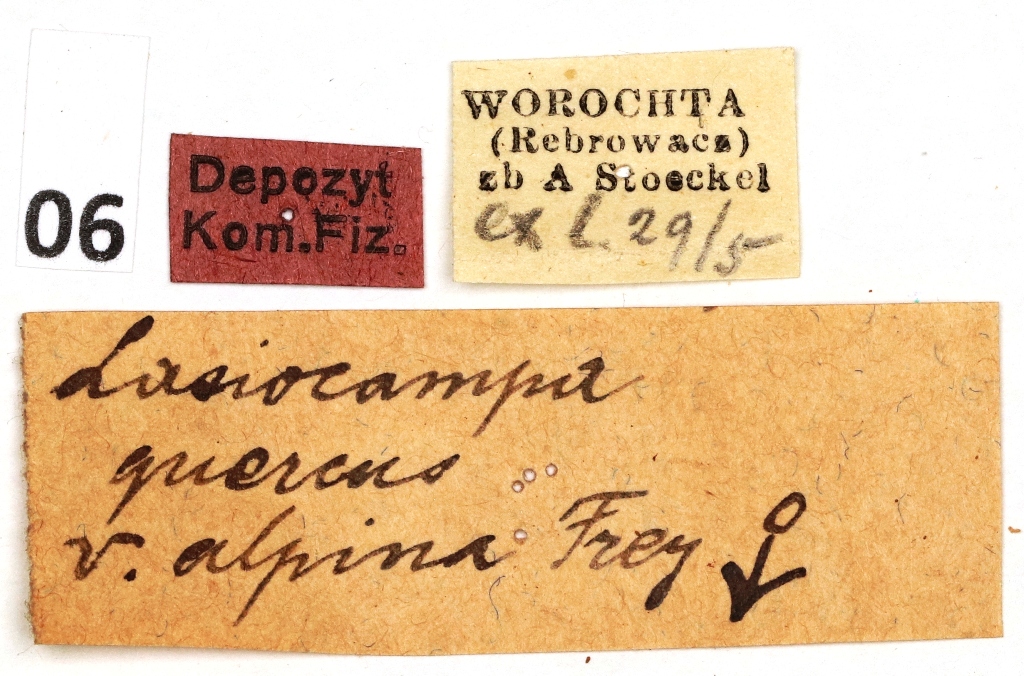 06
Depozyt
Kom.Fiz.
WOROCHTA
(Rebrowacz)
zb A Stoeckel
ex l. 29/5
Lasiocampa
quercus
v. alpina Frey ♂